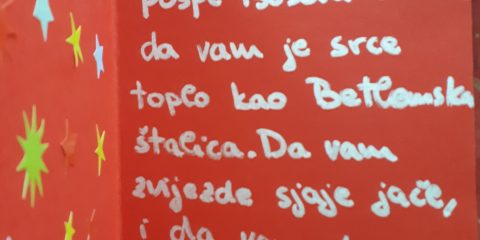 da vam je srce
toplo kao Betlemska
štalica. Da vam
zvijezde sjaje jače,
i da